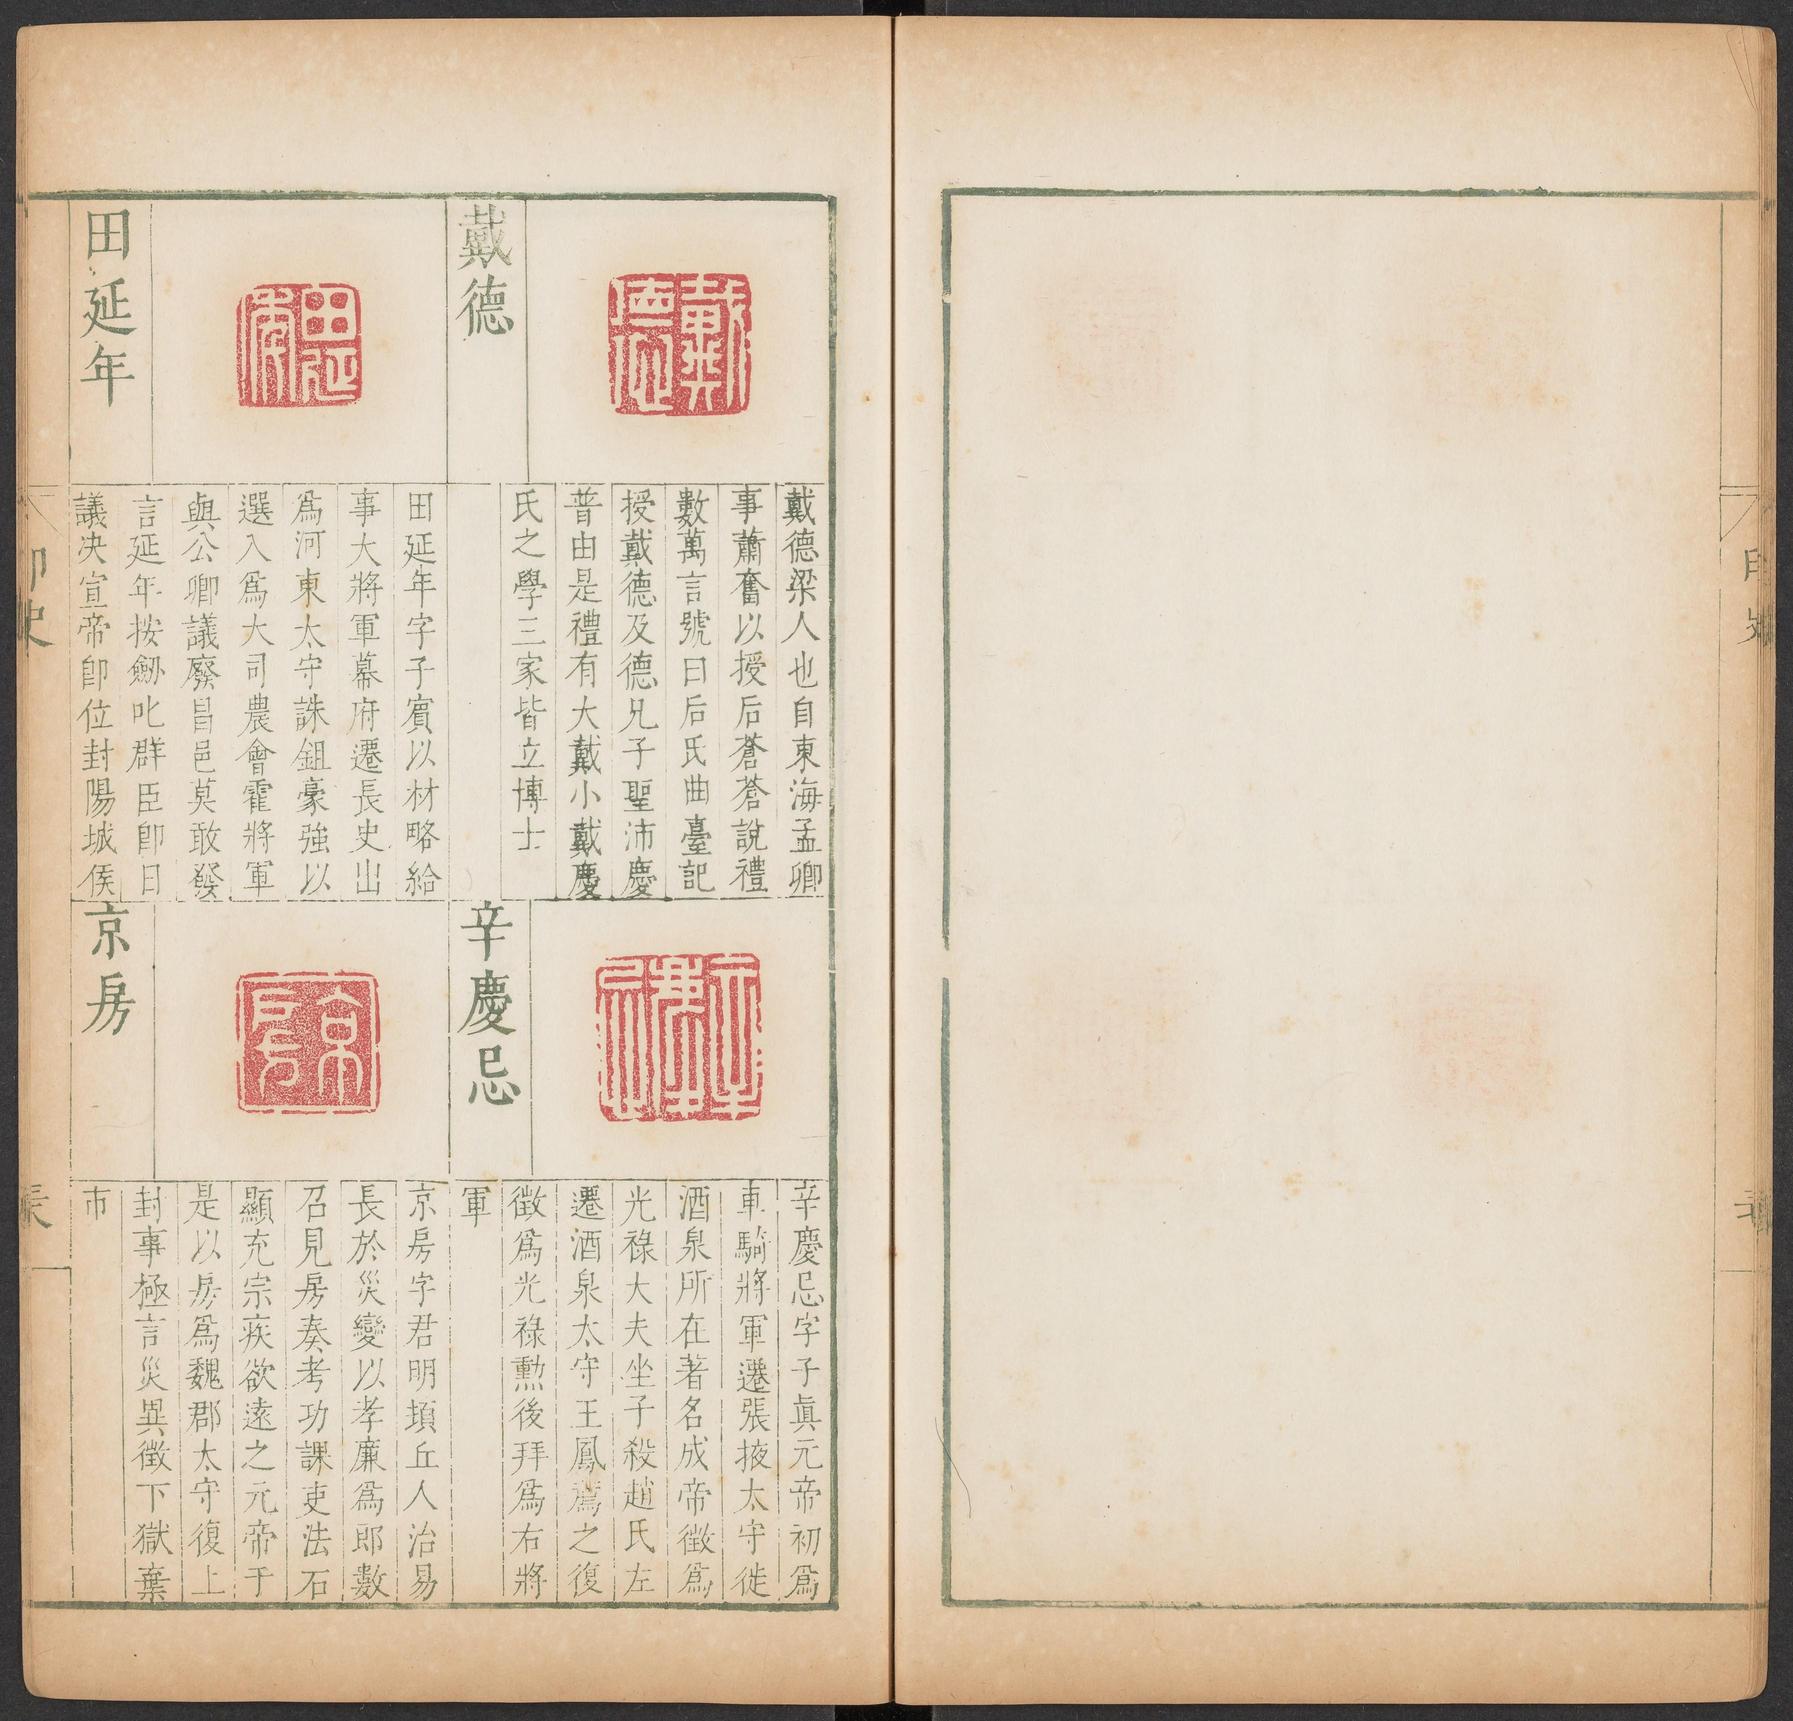 戴德
戴德梁人也自東海孟卿
事蕭奮以授后蒼蒼說禮
數萬言號曰后氏曲臺記
授戴德及德兄子聖沛慶
普由是禮有大戴小戴慶
氏之學三家皆立博士
田延年
田延年字子賓以材略給
事大將軍幕府遷長史出
爲河東太守誅鉏豪強以
選入爲大司農會霍將軍
與公卿議廢昌邑莫敢發
言延年按劒叱群臣卽日
議决宣帝卽位封陽城侯
辛慶忌
辛慶忌字子眞元帝初爲
車騎將軍遷張掖太守徙
酒泉所在著名成帝徵爲
光祿大夫坐子殺趙氏左
遷酒泉太守王鳳薦之復
徵爲光祿勲後拜爲右將
軍
京房
京房字君明頓丘人治易
長於災變以孝廉爲郎數
召見房奏考功課吏法石
顯充宗疾欲遠之元帝于
是以房爲魏郡太守復上
封事極言災異徵下獄棄
市
戴德
田延年
京房
印史
印史